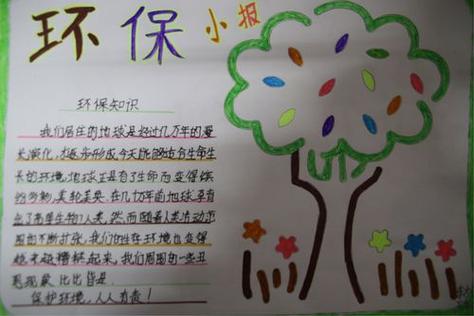 环保小报
环保知识
我们居住的地球是经过几万年的漫
长演化,才逐步形成今天能够适合生命生
长的环境,地球正是有了生命而变得缤
纷多勒,美轮美奂。在几万年前地球又有
了高等生物了人类,然而随着人类活动范
围的不断扩张,我们的生存环境也变得
越来越糟糕起来,我们周围的一些丑
恶现象 比比皆是.
保护环境,人人有责!